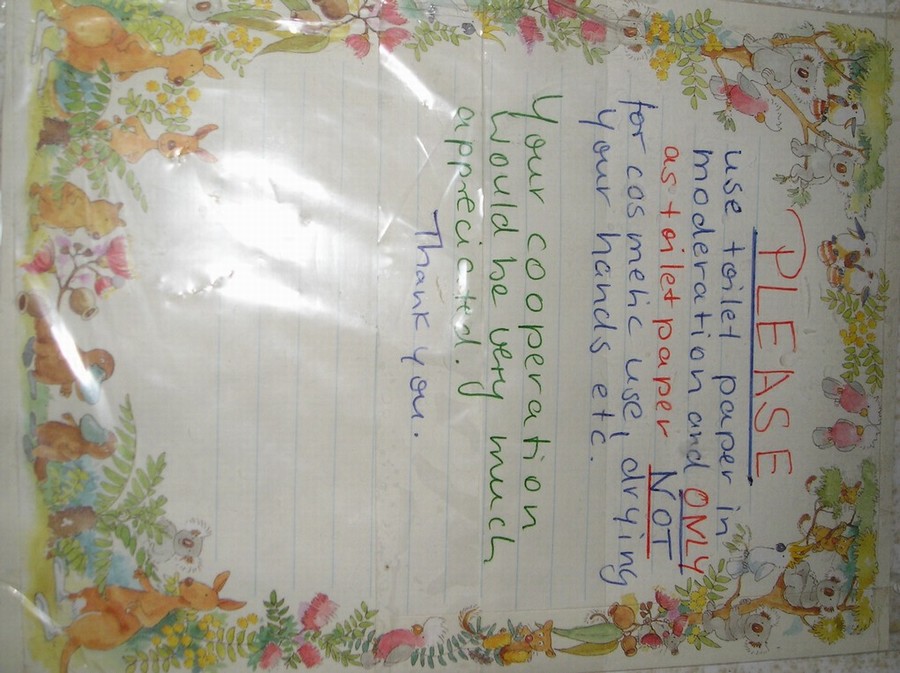 PLEASE
use toilet paper in
moderation and ONLY
as toilet paper NOT
for cosmetic use, drying
your hands etc.
Your cooperation
would be very much
appreciated.
Thank you.